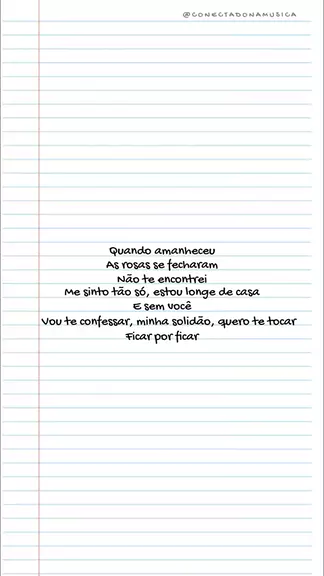 @CONECTADONAMUSICA
Quando amanheceu
As rosas se fecharam
Não te encontrei
Me sinto tão só, estou longe de casa
E sem você
Vou te confessar, minha solidão, quero te tocar
Ficar por ficar